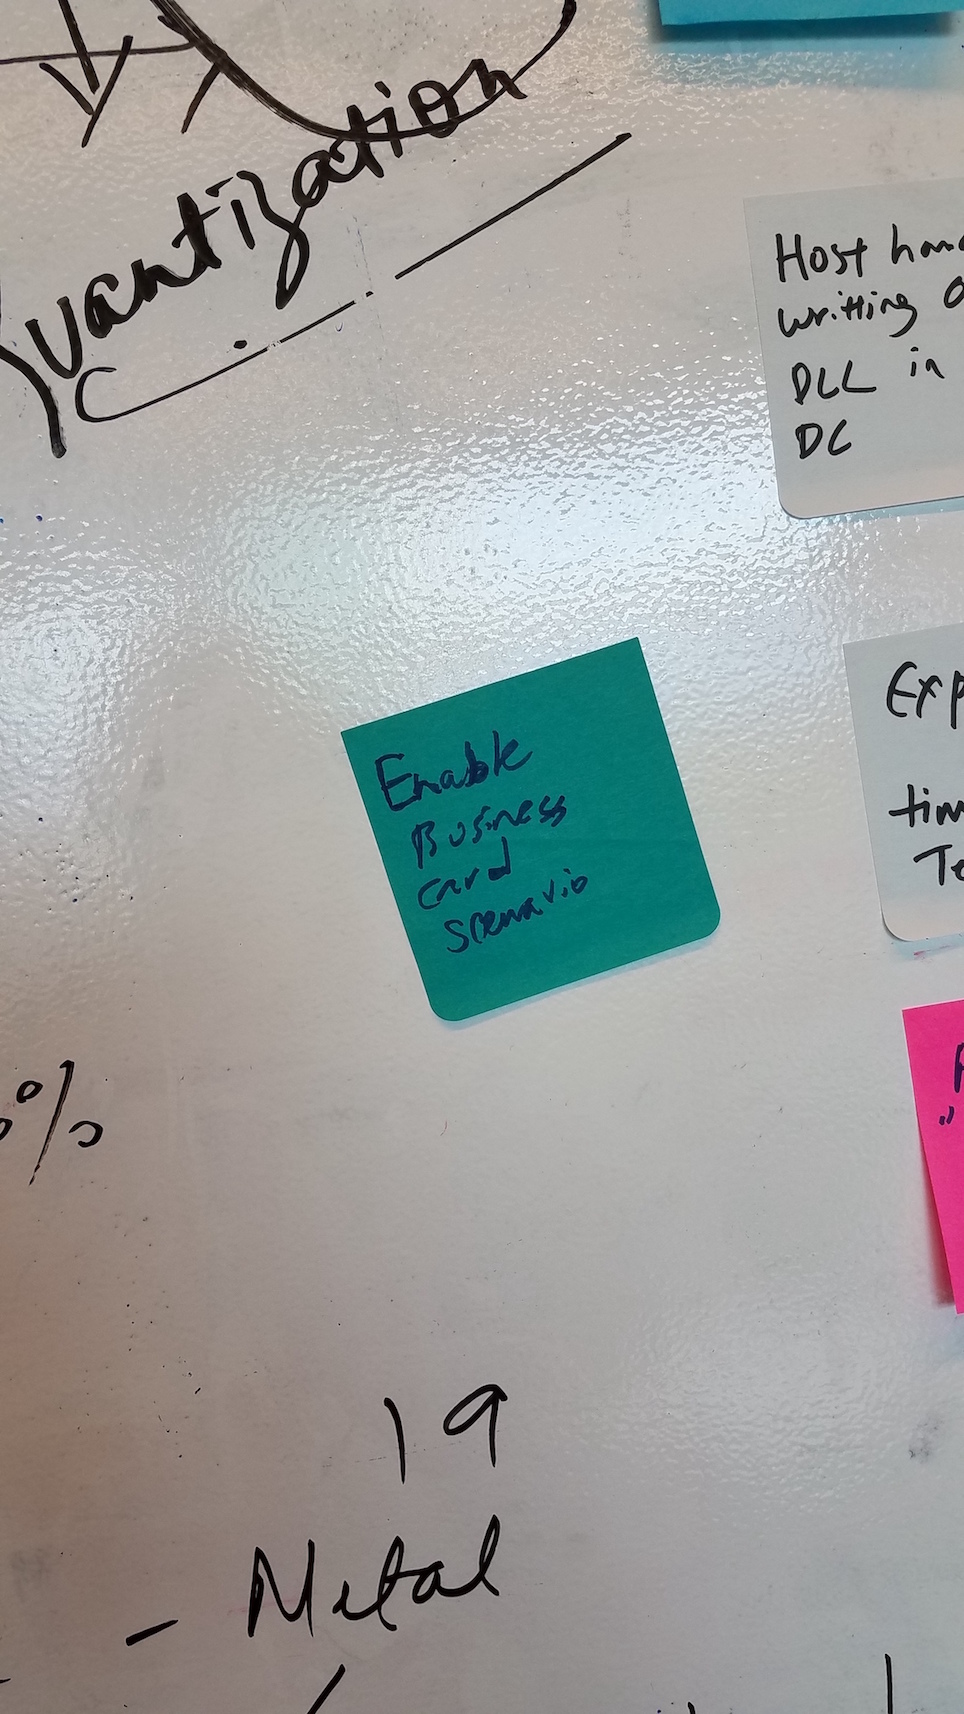 Quantization
Host
writting
DLL in
DC
Enable
Business
card
Scenario
%
19
- Metal